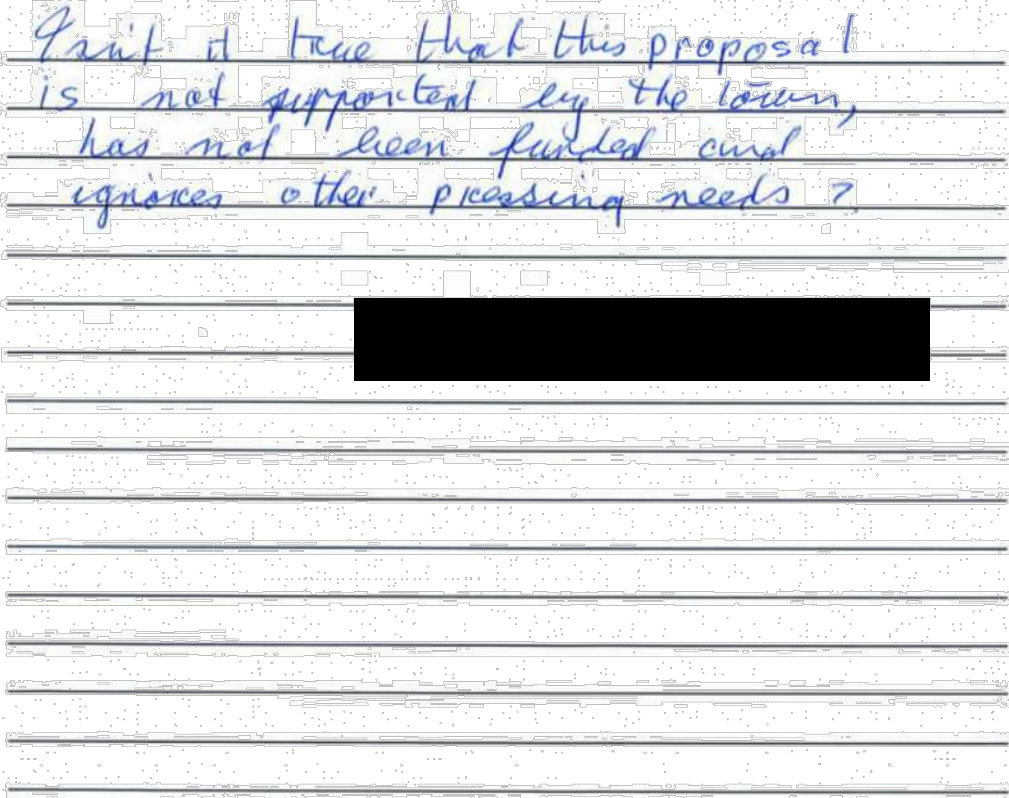 Isn't it true that this proposal
is not supported by the town,
has not been funded and
ignores other pressing needs?